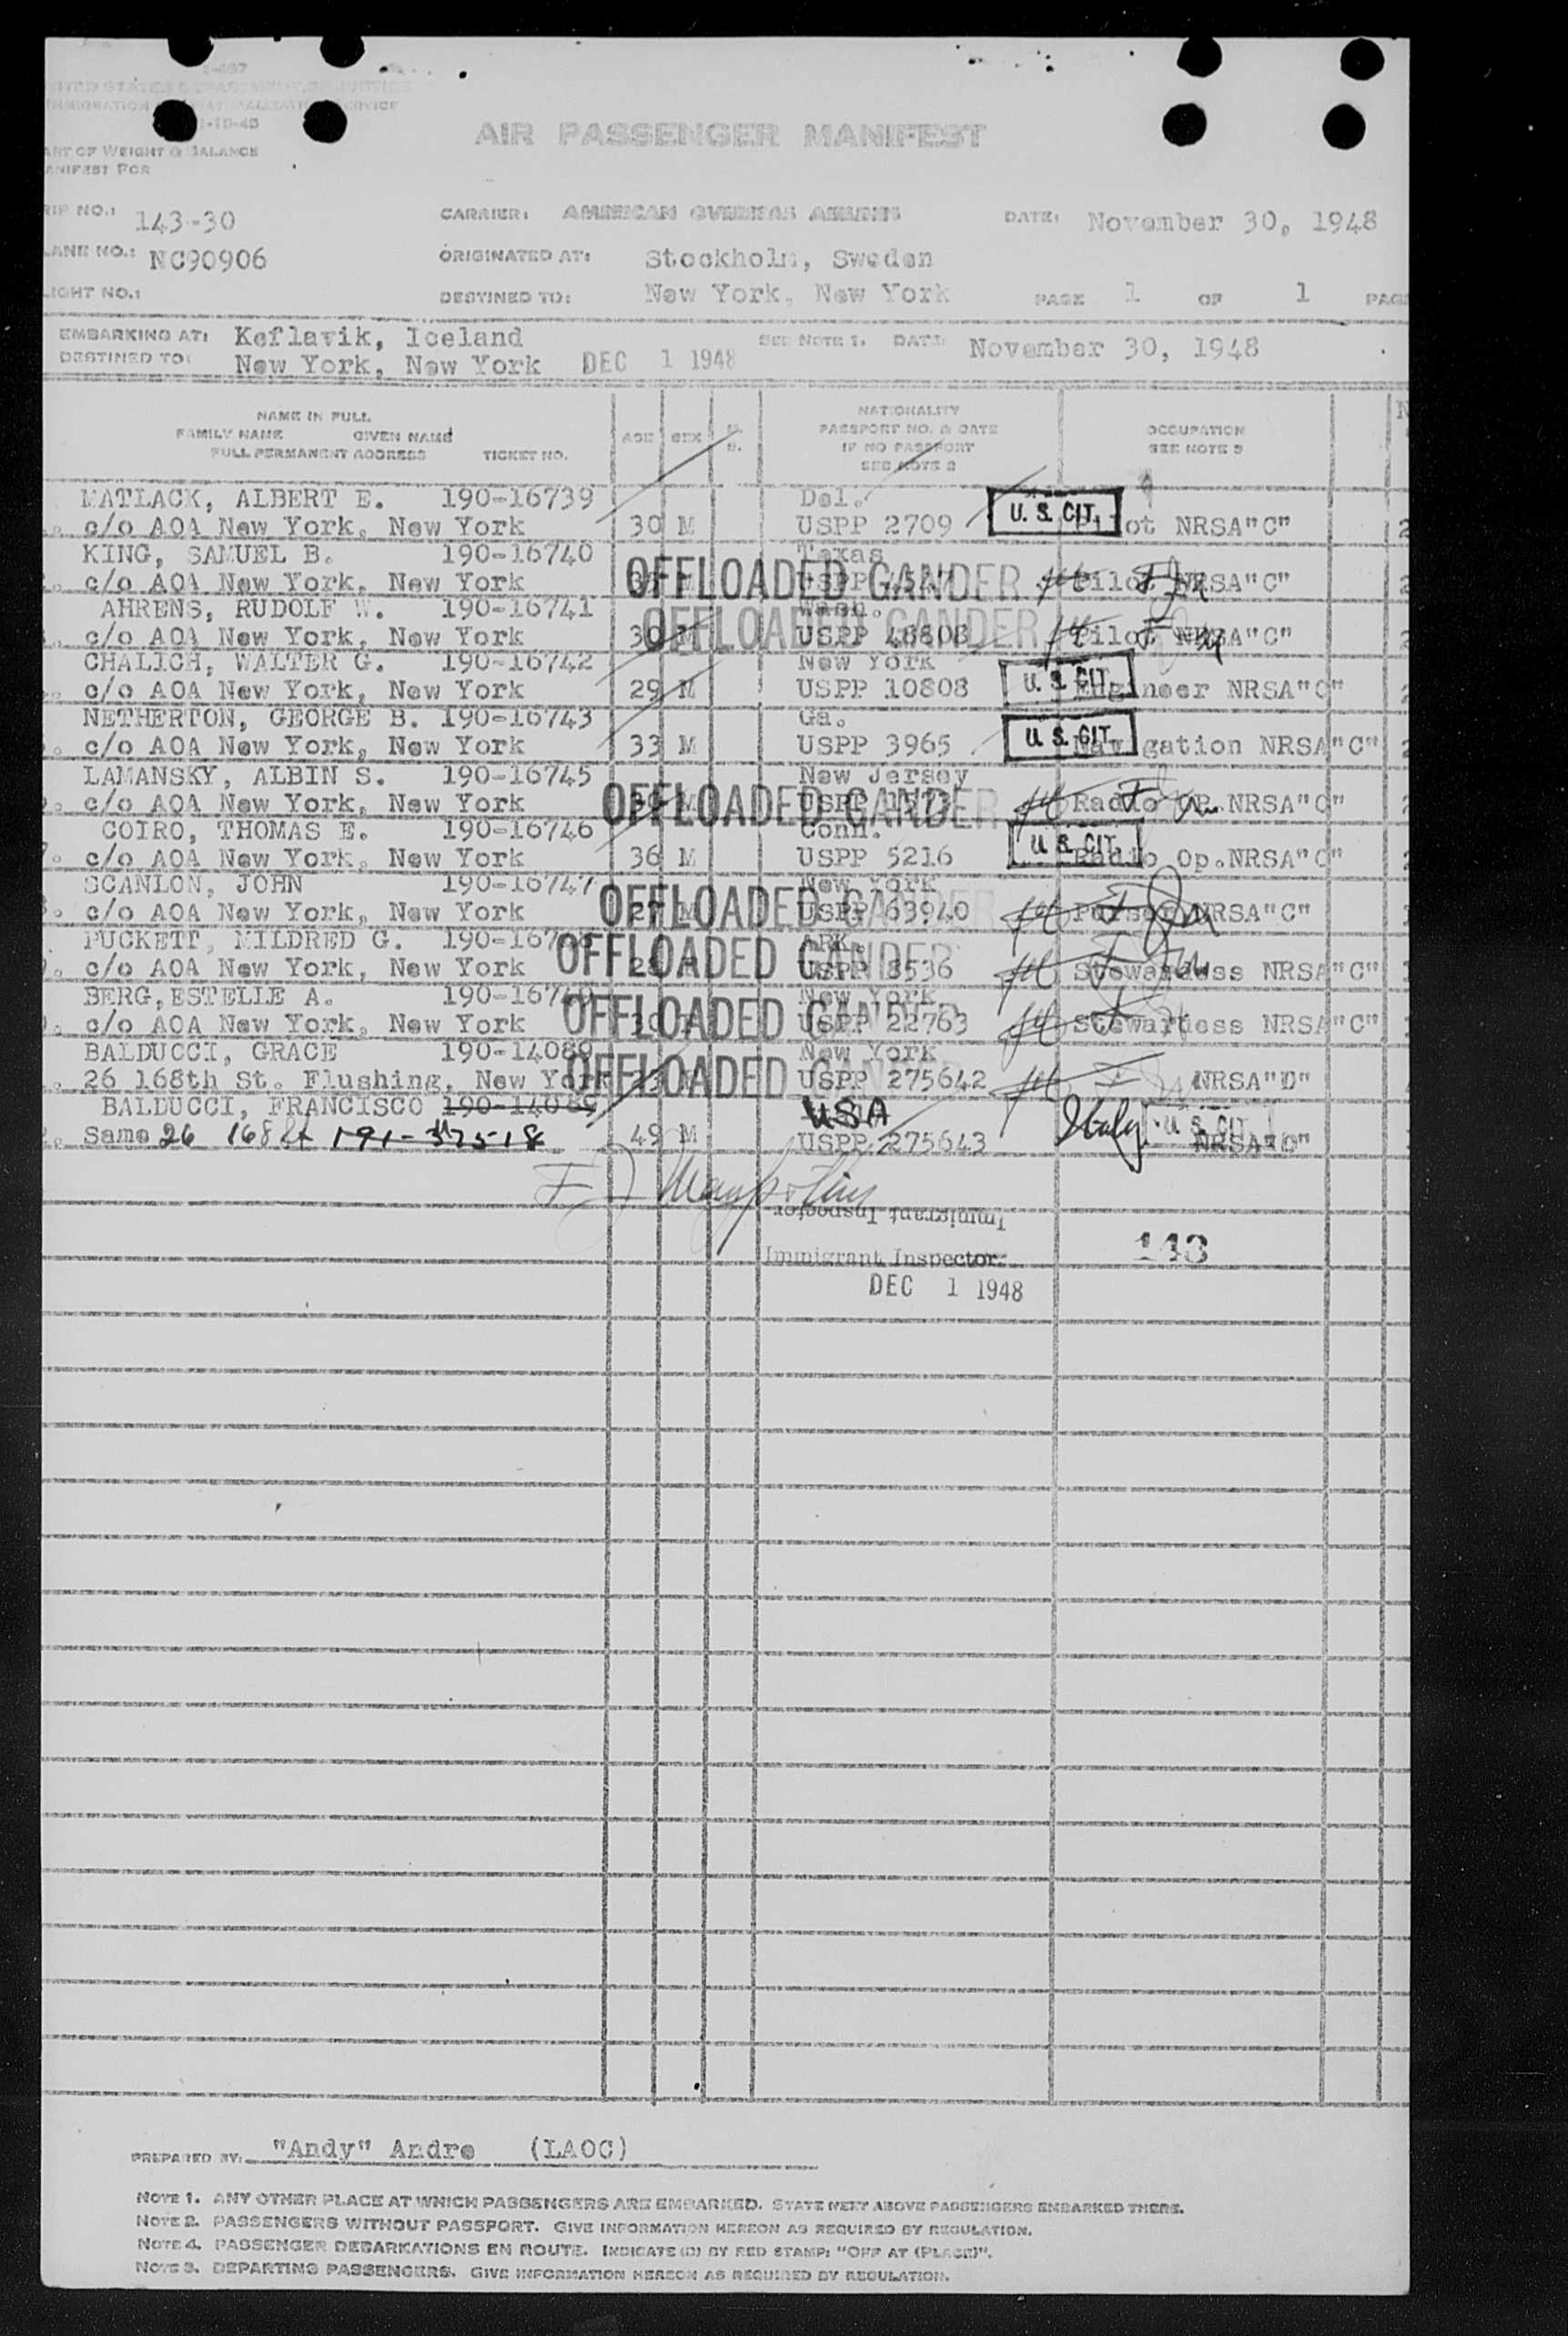 AIR PASSENGER MANIFEST
ART OF WEIGHT & BALANCE
ANIFEST FOR
RIP NO.: 143-30 CARRIER: AMERICAN OVERSEAS AIRLINES DATE: November 30, 1948
LANE NO.: NC90906 ORIGINATED AT: Stockholm, Sweden
LIGHT NO.: DESTINED TO: New York, New York PAGE 1 OF 1 PAG
EMBARKING AT: Keflavik, Iceland SEE NOTE 1. DATE November 30, 1948
DESTINED TO: New York, New York DEC 1 1948
NAME IN FULL NATIONALITY
FAMILY NAME GIVEN NAME AGE SEX PASSPORT NO. & DATE OCCUPATION
FULL PERMANENT ADDRESS TICKET NO. IF NO PASSPORT SEE NOTE 5
SEE NOTE 2
MATLACK, ALBERT E. 190-16739 Del.
c/o AOA New York, New York 30 M USPP 2709 U. S. CIT. ot NRSA"C"
KING, SAMUEL B. 190-16740 Texas
c/o AOA New York, New York OFFLOADED GANDER Pilot NRSA"C"
AHRENS, RUDOLF W. 190-16741 Wash.
c/o AOA New York, New York 30 M OFFLOADED GANDER USPP 48808 Pilot NRSA"C"
CHALICH, WALTER G. 190-16742 New York
c/o AOA New York, New York 29 M USPP 10808 U. S. CIT. Engineer NRSA"C"
NETHERTON, GEORGE B. 190-16743 Ga.
c/o AOA New York, New York 33 M USPP 3965 U. S. CIT. Navigation NRSA"C"
LAMANSKY, ALBIN S. 190-16745 New Jersey
c/o AOA New York, New York OFFLOADED GANDER Radio Op.NRSA"C"
COIRO, THOMAS E. 190-16746 Conn.
c/o AOA New York, New York 36 M USPP 5216 U. S. CIT. Radio Op.NRSA"C"
SCANLON, JOHN 190-16747 New York
c/o AOA New York, New York 27 M OFFLOADED GANDER USPP 63940 Purser NRSA"C"
PUCKETT, MILDRED G. ARK.
c/o AOA New York, New York OFFLOADED GANDER USPP 8536 Stewardess NRSA"C"
BERG, ESTELLE A. New York
c/o AOA New York, New York OFFLOADED GANDER USPP 22763 Stewardess NRSA"C"
BALDUCCI, GRACE 190-14089 New York
26 168th St. Flushing, New York OFFLOADED USPP 275642 NRSA"D"
BALDUCCI, FRANCISCO USA
Same 26 168 St 49 M USPP 275643 Italy U. S. CIT.
Immigrant Inspector
Immigrant Inspector 143
DEC 1 1948
PREPARED BY: "Andy" Andre (LAOC)
NOTE 1. ANY OTHER PLACE AT WHICH PASSENGERS ARE EMBARKED. STATE NEXT ABOVE PASSENGERS EMBARKED THERE.
NOTE 2. PASSENGERS WITHOUT PASSPORT. GIVE INFORMATION HEREON AS REQUIRED BY REGULATION.
NOTE 4. PASSENGER DEBARKATIONS EN ROUTE. INDICATE (D) BY RED STAMP: "OFF AT (PLACE)".
NOTE 3. DEPARTING PASSENGERS. GIVE INFORMATION HEREON AS REQUIRED BY REGULATION.